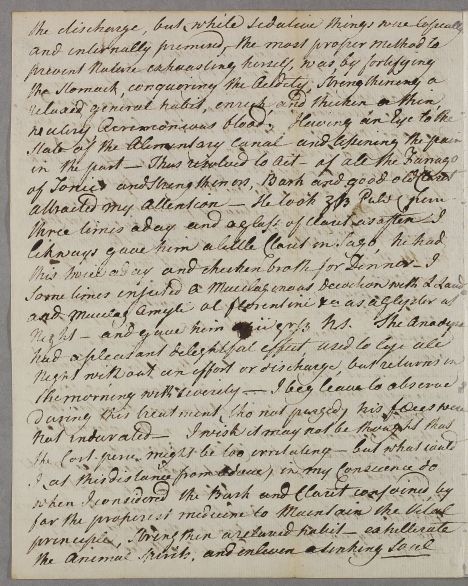 the discharge, but while Sedative things were topically
and internally premised, the most proper method to
prevent Nature exhausting herself, was by fortifying
the Stomack, conquering the Acidity, Strengthening a
relaxed general habit, enrich and thicken a thin,
Acremoneous blood, Having an Eye to the
State of the Alementary canal and lessening the pain
in the part — Thus resolved to act of all the Farrago
of Tonics and Strengthiners, Bark and good old Claret
attracted my Attention — He took
three times a day and a glass of Claret as often — I
likeways gave him a little Claret in Sago, he had
this twice a day and chicken broth for Dinner — I
Some times injected a Mucilagenous Decoction with
and Mucilag Amyli as a Glyster at
Night — and gave him The Anodyne
had a pleasant delightful effect, used to lye all
Night with out an effort or discharge, but returns in
the morning with Severity — I beg leave to observe
during this treatment, tho not purged, his fæces were
not indurated — I wish it may not be thought that
the Cort. peru. might be too irritating — but what could
I at this distance from advice, in my Conscience do
when I considered the Bark and Claret conjoined, by
far the properest medicine to Maintain the Vital
principle, Strengthen a relaxed habit — exhillerate
the Animal Spirits, and enliven a sinking Soul